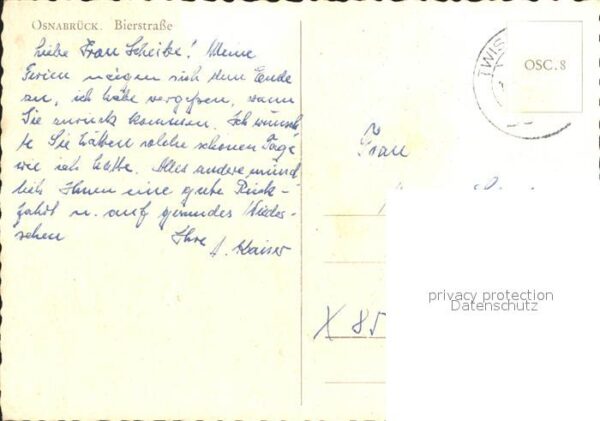 OSNABRÜCK. Bierstraße
Liebe Frau Scheibe! Meine
Ferien neigen sich dem Ende
zu, ich habe vergessen, wann
Sie zurück kommen. Ich wünsch
te Sie hätten solche schönen Tage
wie ich hatte. Alles andere münd
lich Ihnen eine gute Rück-
fahrt u. auf gesundes Wieder-
sehen Ihre
A. Kaiser
TWIS
OSC. 8
Frau
X 85
privacy protection
Datenschutz